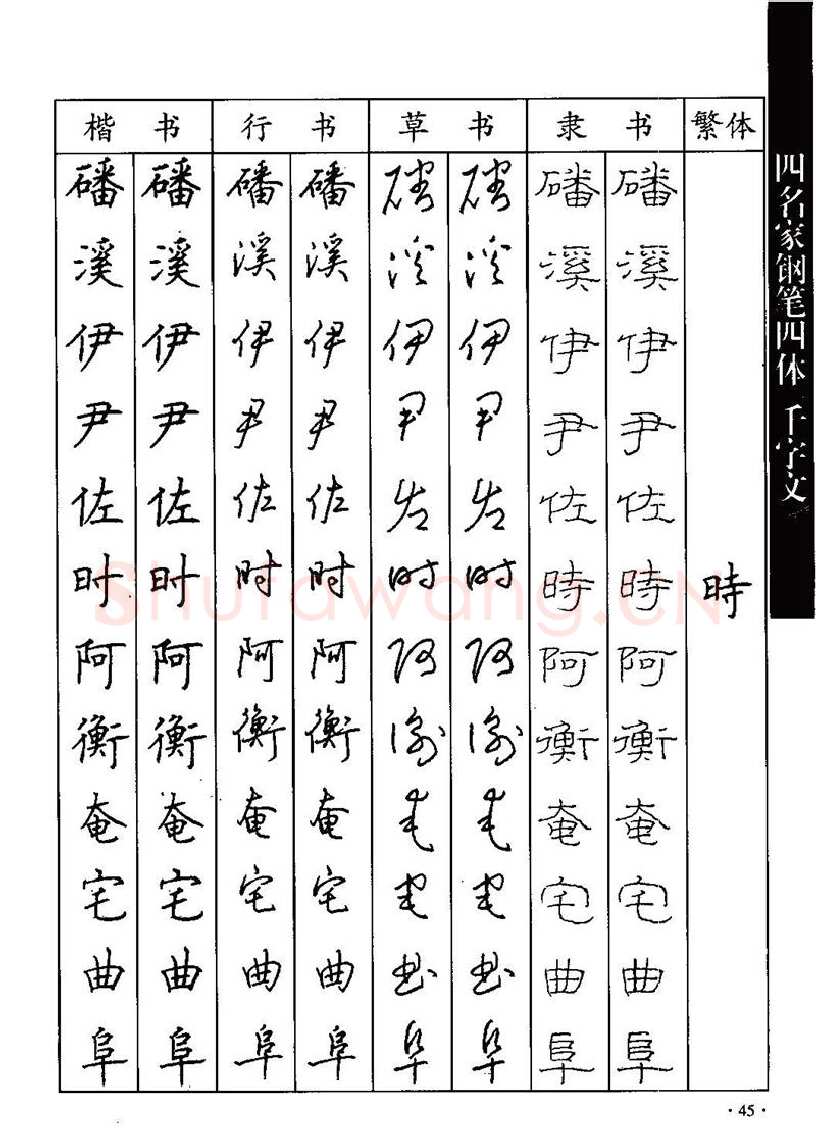 楷 书 行 书 草 书 隶 书 繁体
磻 磻 磻 磻 磻 磻 磻 磻
溪 溪 溪 溪 溪 溪 溪 溪
伊 伊 伊 伊 伊 伊 伊 伊
尹 尹 尹 尹 尹 尹 尹 尹
佐 佐 佐 佐 佐 佐 佐 佐
时 时 时 时 时 时 時 時 時
阿 阿 阿 阿 阿 阿 阿 阿
衡 衡 衡 衡 衡 衡 衡 衡
奄 奄 奄 奄 奄 奄 奄 奄
宅 宅 宅 宅 宅 宅 宅 宅
曲 曲 曲 曲 曲 曲 曲 曲
阜 阜 阜 阜 阜 阜 阜 阜
四名家钢笔四体 千字文
Shufawang.CN
·45·